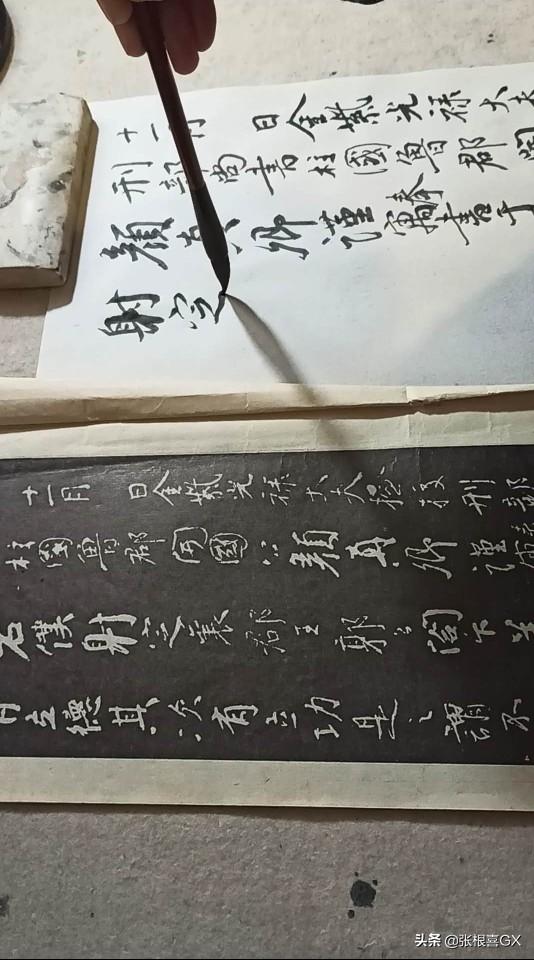 十一月 日金紫光祿大夫
刑部尚書柱國魯郡開
顏真卿謹奉書于
射定
十一月 日金紫光祿大夫檢校刑部
柱國魯郡開國公顏真卿謹
右僕射定襄郡王郭公閣下蓋
立德其次有立功是之謂不
头条 @张根喜GX